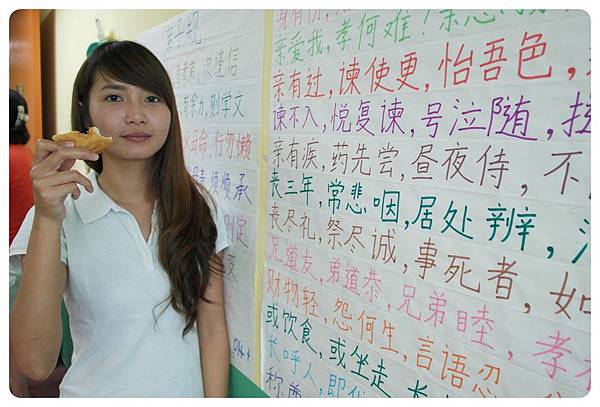 弟子规
次谨信
有余力,则学文
命,行勿懒
须顺承
则定
身有伤,
亲爱我,孝何难!亲
亲有过,谏使更,怡吾色,
谏不入,悦复谏,号泣随,
亲有疾,药先尝,昼夜侍,不
丧三年,常悲咽,居处辨,
丧尽礼,祭尽诚,事死者,如
兄道友,弟道恭,兄弟睦,孝
财物轻,怨何生,言语忍
或饮食,或坐走,长
长呼人,即代
称尊